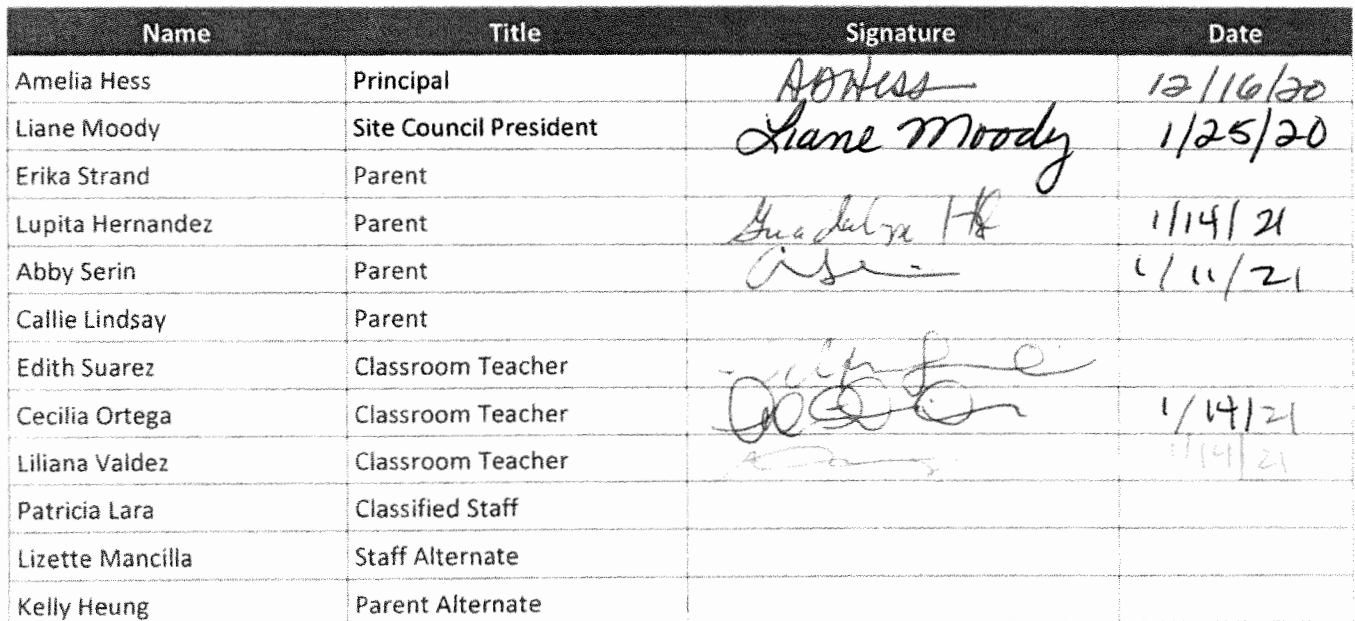 Name Title Signature Date
Amelia Hess Principal ADHess 12/16/20
Liane Moody Site Council President Liane Moody 1/25/20
Erika Strand Parent
Lupita Hernandez Parent 1/14/21
Abby Serin Parent 1/11/21
Callie Lindsay Parent
Edith Suarez Classroom Teacher
Cecilia Ortega Classroom Teacher 1/14/21
Liliana Valdez Classroom Teacher 1/14/21
Patricia Lara Classified Staff
Lizette Mancilla Staff Alternate
Kelly Heung Parent Alternate